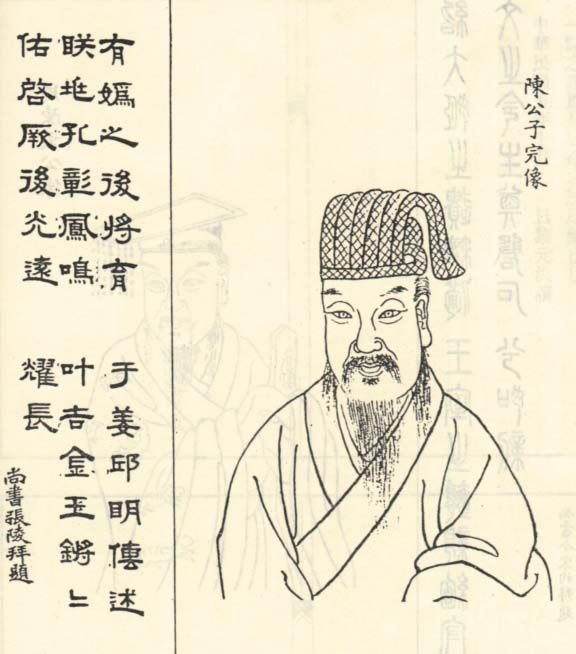 陳公子完像
有嬀之後將育 于姜邱明傳述
眹兆孔彰鳳鳴 叶吉金玉鏘〻
佑啓厥後光遠 耀長
尚書張陵拜題